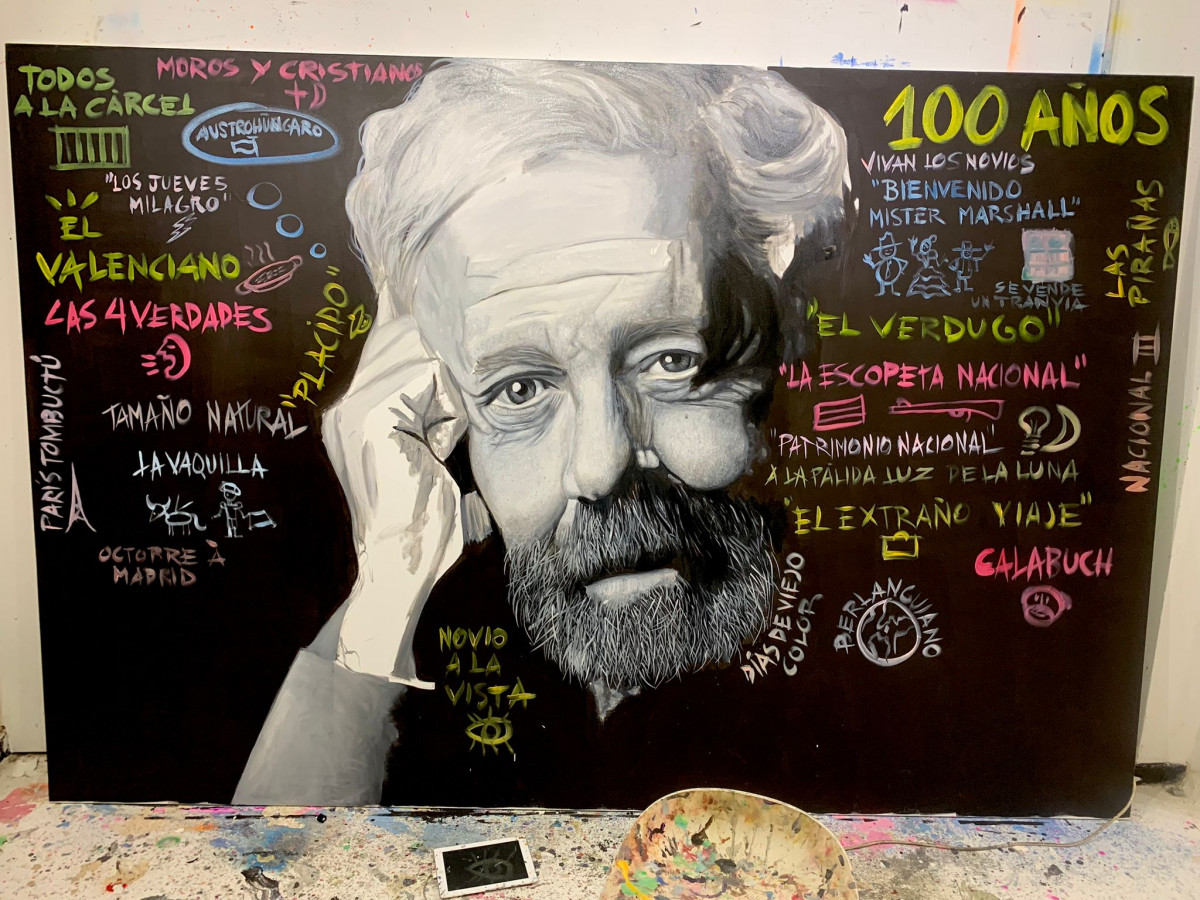 TODOS
A LA CÀRCEL
MOROS Y CRISTIANOS
+D
AUSTROHÜNGARO
"LOS JUEVES
MILAGRO"
EL
VALENCIANO
LAS 4 VERDADES
"PLACIDO"
PARÍS TOMBUCTÚ
TAMAÑO NATURAL
LA VAQUILLA
OCTOPRE À
MADRID
NOVIO
A LA
VISTA
100 AÑOS
VIVAN LOS NOVIOS
"BIENVENIDO
MISTER MARSHALL"
SE VENDE
UN TRANVIA
LAS
PIRAÑAS
"EL VERDUGO"
"LA ESCOPETA NACIONAL"
NACIONAL III
"PATRIMONIO NACIONAL"
A LA PÁLIDA LUZ DE LA LUNA
"EL EXTRAÑO VIAJE"
CALABUCH
DÍAS DE VIEJO
COLOR
BERLANGUIANO